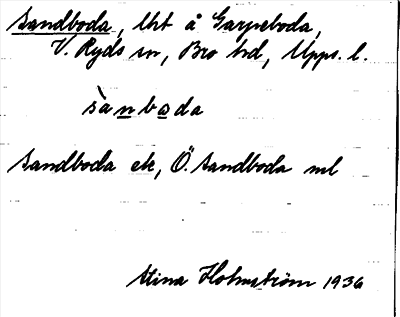 Sandboda, lht å Garpeboda,
V. Ryds sn, Bro hd, Upps. l.
sànbada
Sandboda ek, Ö. Sandboda ml
Stina Holmström 1936